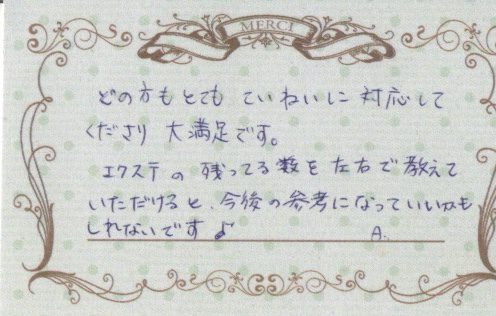 MERCI
どの方もとても ていねいに 対応して
くださり 大満足です。
エクステの 残ってる数を左右で教えて
いただけると、今後の参考になっていいかも
しれないです♪
A.